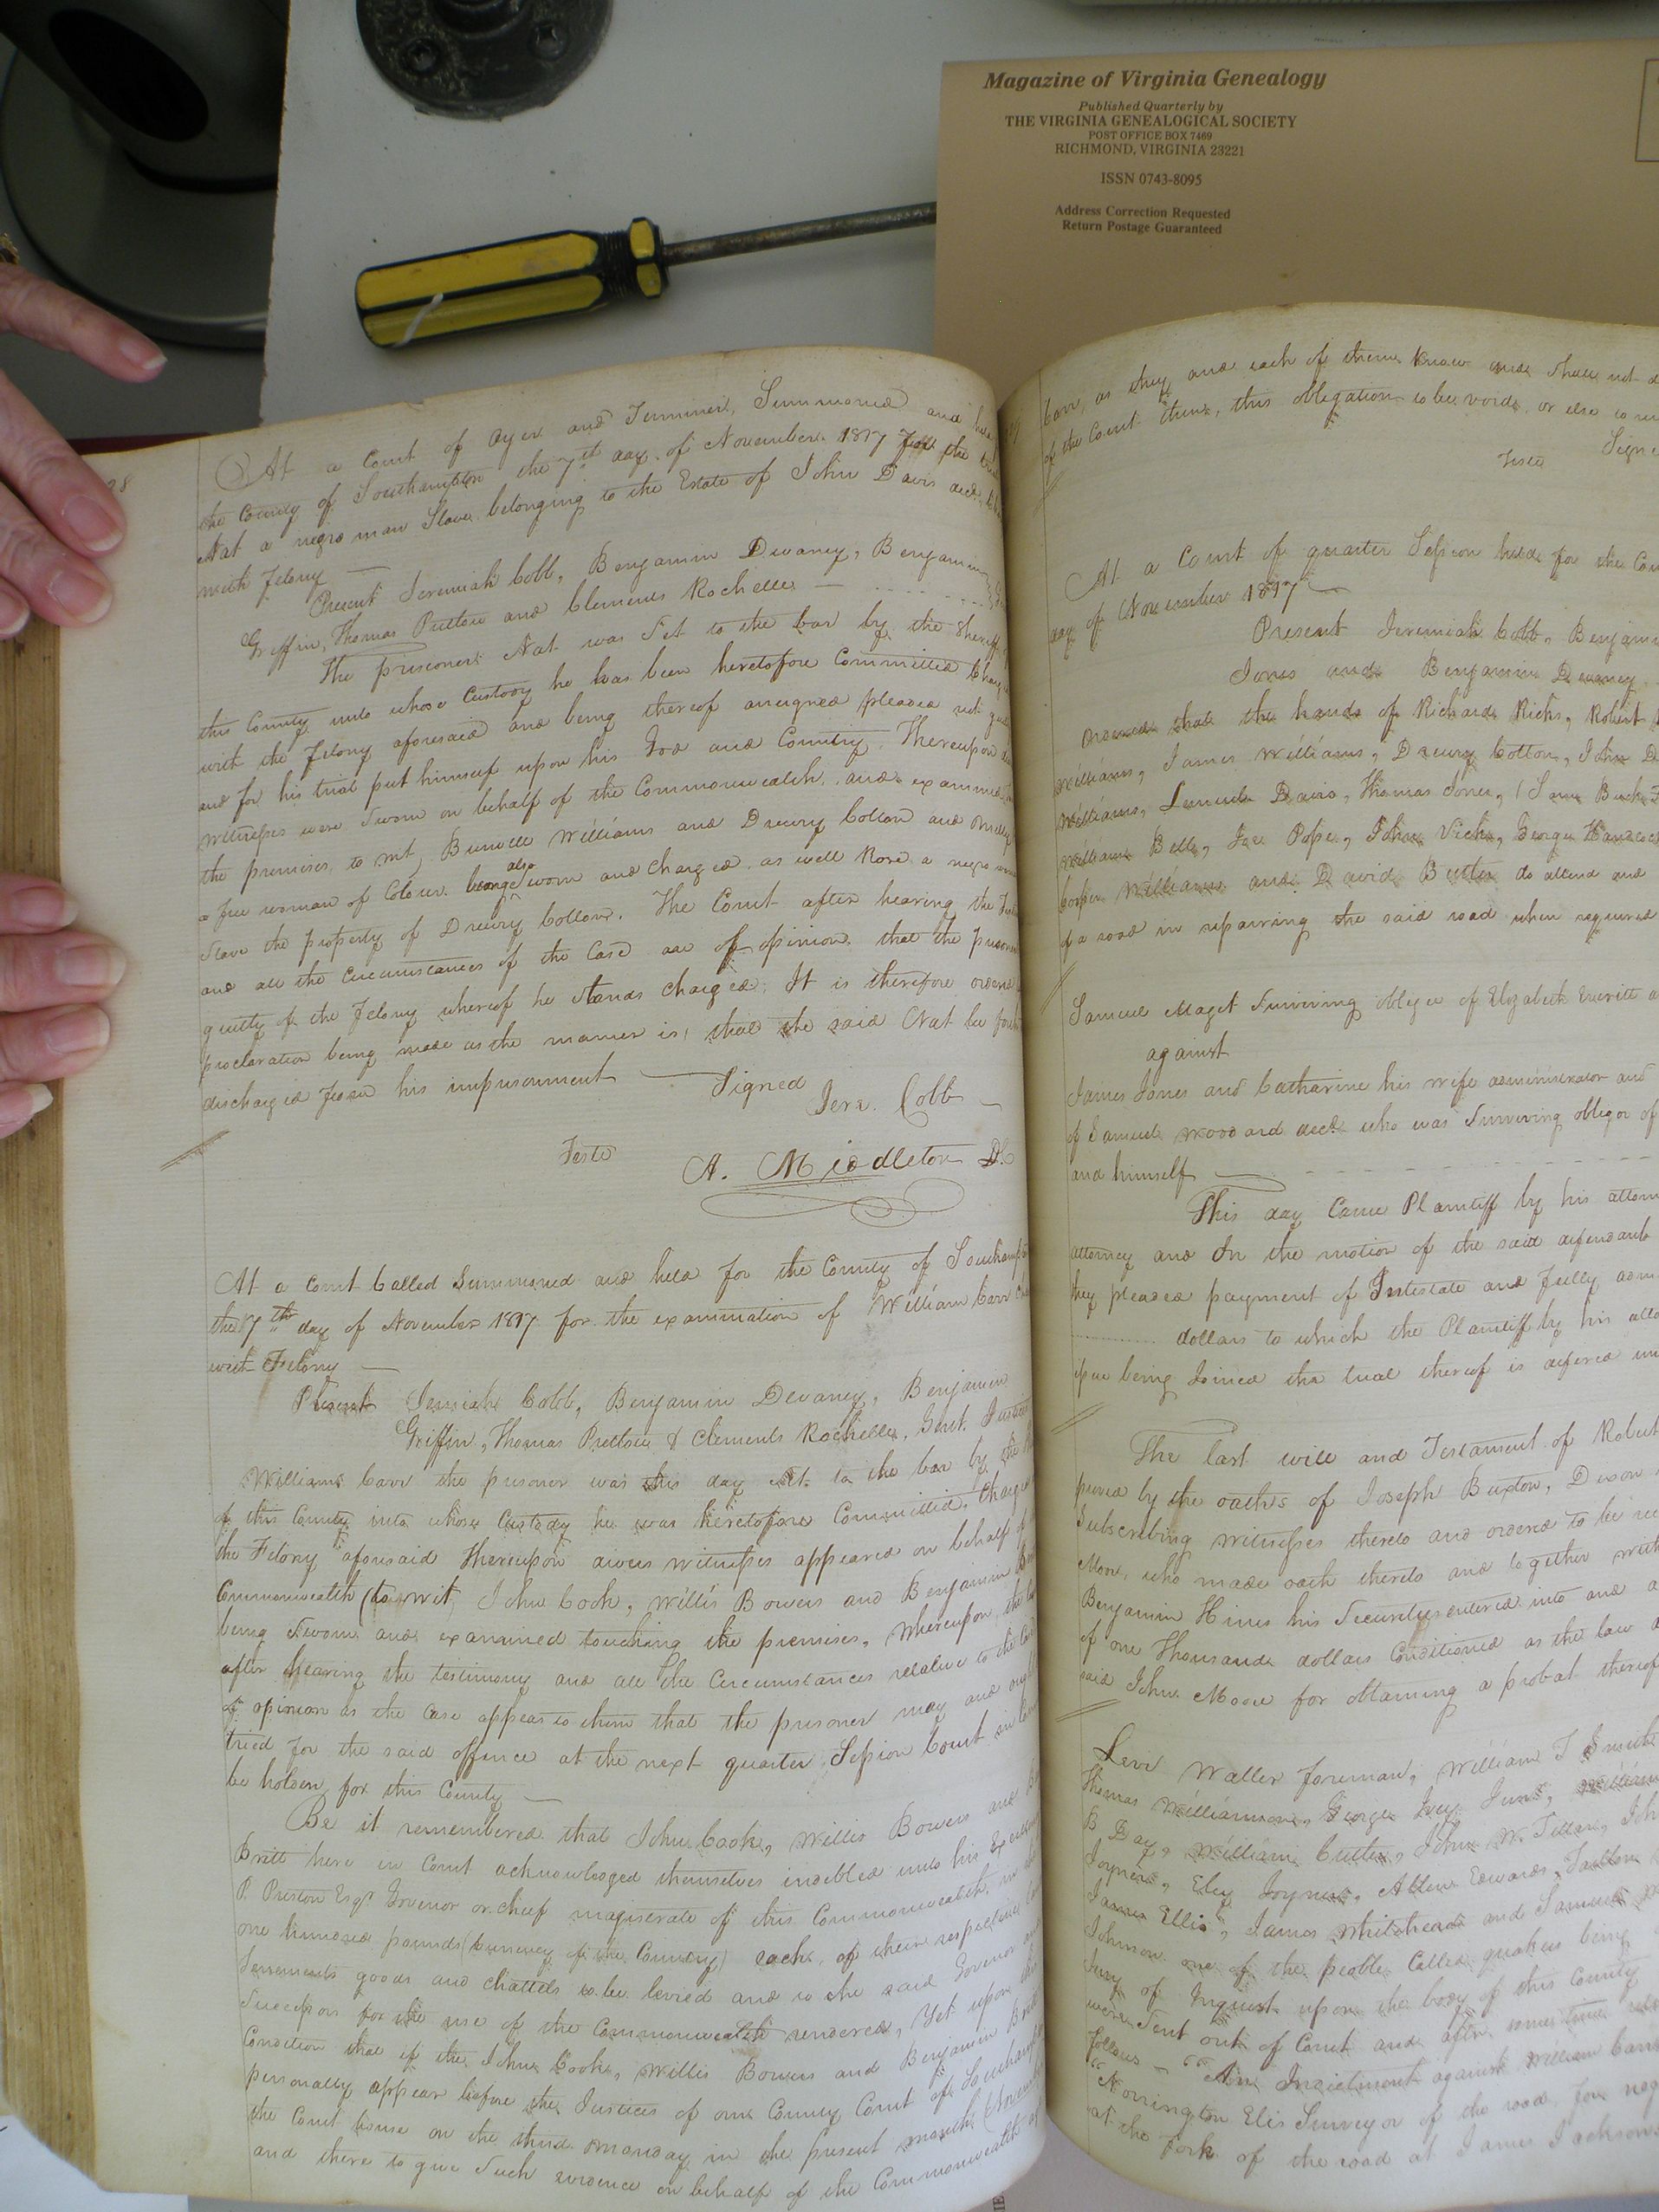 Magazine of Virginia Genealogy
Published Quarterly by
THE VIRGINIA GENEALOGICAL SOCIETY
POST OFFICE BOX 7469
RICHMOND, VIRGINIA 23221
ISSN 0743-8095
Address Correction Requested
Return Postage Guaranteed
At a Court of Oyer and Terminer, Summoned and held
the County of Southampton the 7th day of November 1817 for the
Nat a negro man Slave belonging to the Estate of John Davis decd.
with Felony
Present Jeremiah Cobb, Benjamin Devaney, Benjamin
Griffin, Thomas Pretlow and Clements Rochelle
The prisoner Nat was Set to the bar by the Sheriff
this County into whose Custody he has been heretofore Committed Charged
with the Felony aforesaid and being thereof arraigned pleaded not
and for his trial put himself upon his God and Country. Thereupon
witnesses were Sworn on behalf of the Commonwealth, and examined
the premises, to wit, Burwell Williams and Drewry Cotton and Milly
a free woman of Colour being also Sworn and Charged as well Rose a negro
Slave the property of Drewry Cotton. The Court after hearing the
and all the Circumstances of the Case are of opinion that the prisoner
guilty of the Felony whereof he Stands Charged. It is therefore ordered
proclaration being made as the manner is, that the said Nat be
discharged from his imprisonment
Signed
Jere. Cobb
Teste
A. Middleton D.C
At a Court Called Summoned and held for the County of Southampton
the 7th day of November 1817 for the examination of William Carr
with Felony
Present Jeremiah Cobb, Benjamin Devaney, Benjamin
Griffin, Thomas Pretlow & Clements Rochelle, Gent. Justices
William Carr the prisoner was this day Set to the bar by the
of this County into whose Custody he was heretofore Committed. Charged
the Felony aforesaid Thereupon divers witnesses appeared on behalf of
Commonwealth (to wit) John Cook, Willis Bowers and Benjamin
being Sworn and examined touching the premises, Whereupon the
after hearing the testimony and all the Circumstances relative to the
of opinion as the Case appears to them that the prisoner may and
tried for the said offence at the next quarter Session Court
be holden for this County
Be it remembered that John Cook, Willis Bowers and
Britt here in Court acknowledged themselves indebted unto his
P. Preston Esqr. Govenor or chief magistrate of this Commonwealth in
one hundred pounds (Currency of the Country) each, of their respective
Tenements goods and chattels to be levied and to the said Govenor
Successors for the use of the Commonwealth rendered, Yet upon this
Condition that if the John Cook, Willis Bowers and Benjamin Britt
personally appear before the Justices of our County Court of Southampton
the Court house on the third monday in the present month (November)
and there to give Such evidence on behalf of the Commonwealth
Carr, as they and each of them know and shall not
of the Court thence, this obligation to be void, or else to
Signed
Teste
At a Court of quarter Session held for the
day of November 1817
Present Jeremiah Cobb, Benjamin
Jones and Benjamin Devaney
Ordered that the hands of Richard Ricks, Robert
Williams, James Williams, Drewry Cotton, John
Williams, Lemuel Davis, Thomas Jones,
William Bell, Joe Pope, John Vick, George
Williams and David Butler do attend and
of a road in repairing the said road when required
Samuel Maget Surviving obligee of Elizabeth Everitt
against
James Jones and Catharine his wife administrator and
of Samuel Woodard decd. who was Surviving obligor of
and himself
This day Came Plaintiff by his
attorney and On the motion of the said defendants
they pleaded payment of Intestate and fully
dollars to which the Plaintiff by his
issue being Joined the trial thereof is defered
The last will and Testament of Robert
proved by the oaths of Joseph Buxton, Dixon
Subscribing witnesses thereto and ordered to be
Moore, who made oath thereto and together with
Benjamin Hines his Securetys entered into and
of one Thousand dollars Conditioned as the law
said John Moore for obtaining a probat thereof
Levi Waller foreman, William T Smith
Thomas Williamson, George Ivey Junr, William
B Day, William Cutler, John W. Tiller,
Joyner, Eley Joyner, Allen Edwards,
James Ellis, James Whitehead and Samuel
Johnson one of the people Called quakers being
Jury of Inquest upon the body of this County
were Sent out of Court and after some time
follows - "An Indictment against William Carr
"Norrington Elis Surveyor of the road for
at the fork of the road at James Jackson